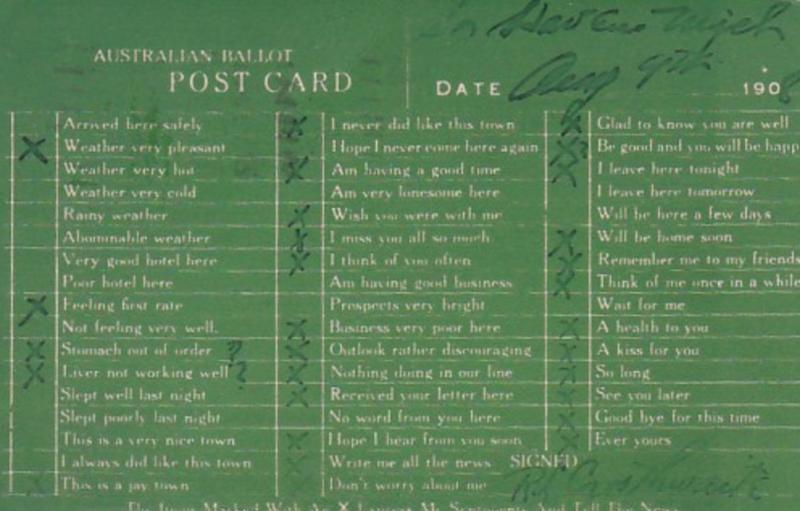 So Haven Mich
AUSTRALIAN BALLOT
POST CARD
DATE Aug 9th 1908
Arrived here safely
X Weather very pleasant
Weather very hot
Weather very cold
Rainy weather
Abominable weather
Very good hotel here
Poor hotel here
X Feeling first rate
Not feeling very well.
X Stomach out of order ?
X Liver not working well ?
Slept well last night
Slept poorly last night
This is a very nice town
I always did like this town
This is a jay town
X I never did like this town
Hope I never come here again
X Am having a good time
Am very lonesome here
X Wish you were with me
X I miss you all so much
X I think of you often
Am having good business
Prospects very bright
X Business very poor here
X Outlook rather discouraging
X Nothing doing in our line
X Received your letter here
No word from you here
X Hope I hear from you soon
X Write me all the news
Don't worry about me
X Glad to know you are well
X? Be good and you will be happ
X I leave here tonight
I leave here tomorrow
Will be here a few days
X Will be home soon
X Remember me to my friends
X Think of me once in a while
Wait for me
X A health to you
X A kiss for you
X So long
X See you later
X Good bye for this time
X Ever yours
SIGNED
The Items Marked With An X Express My Sentiments And Tell The News